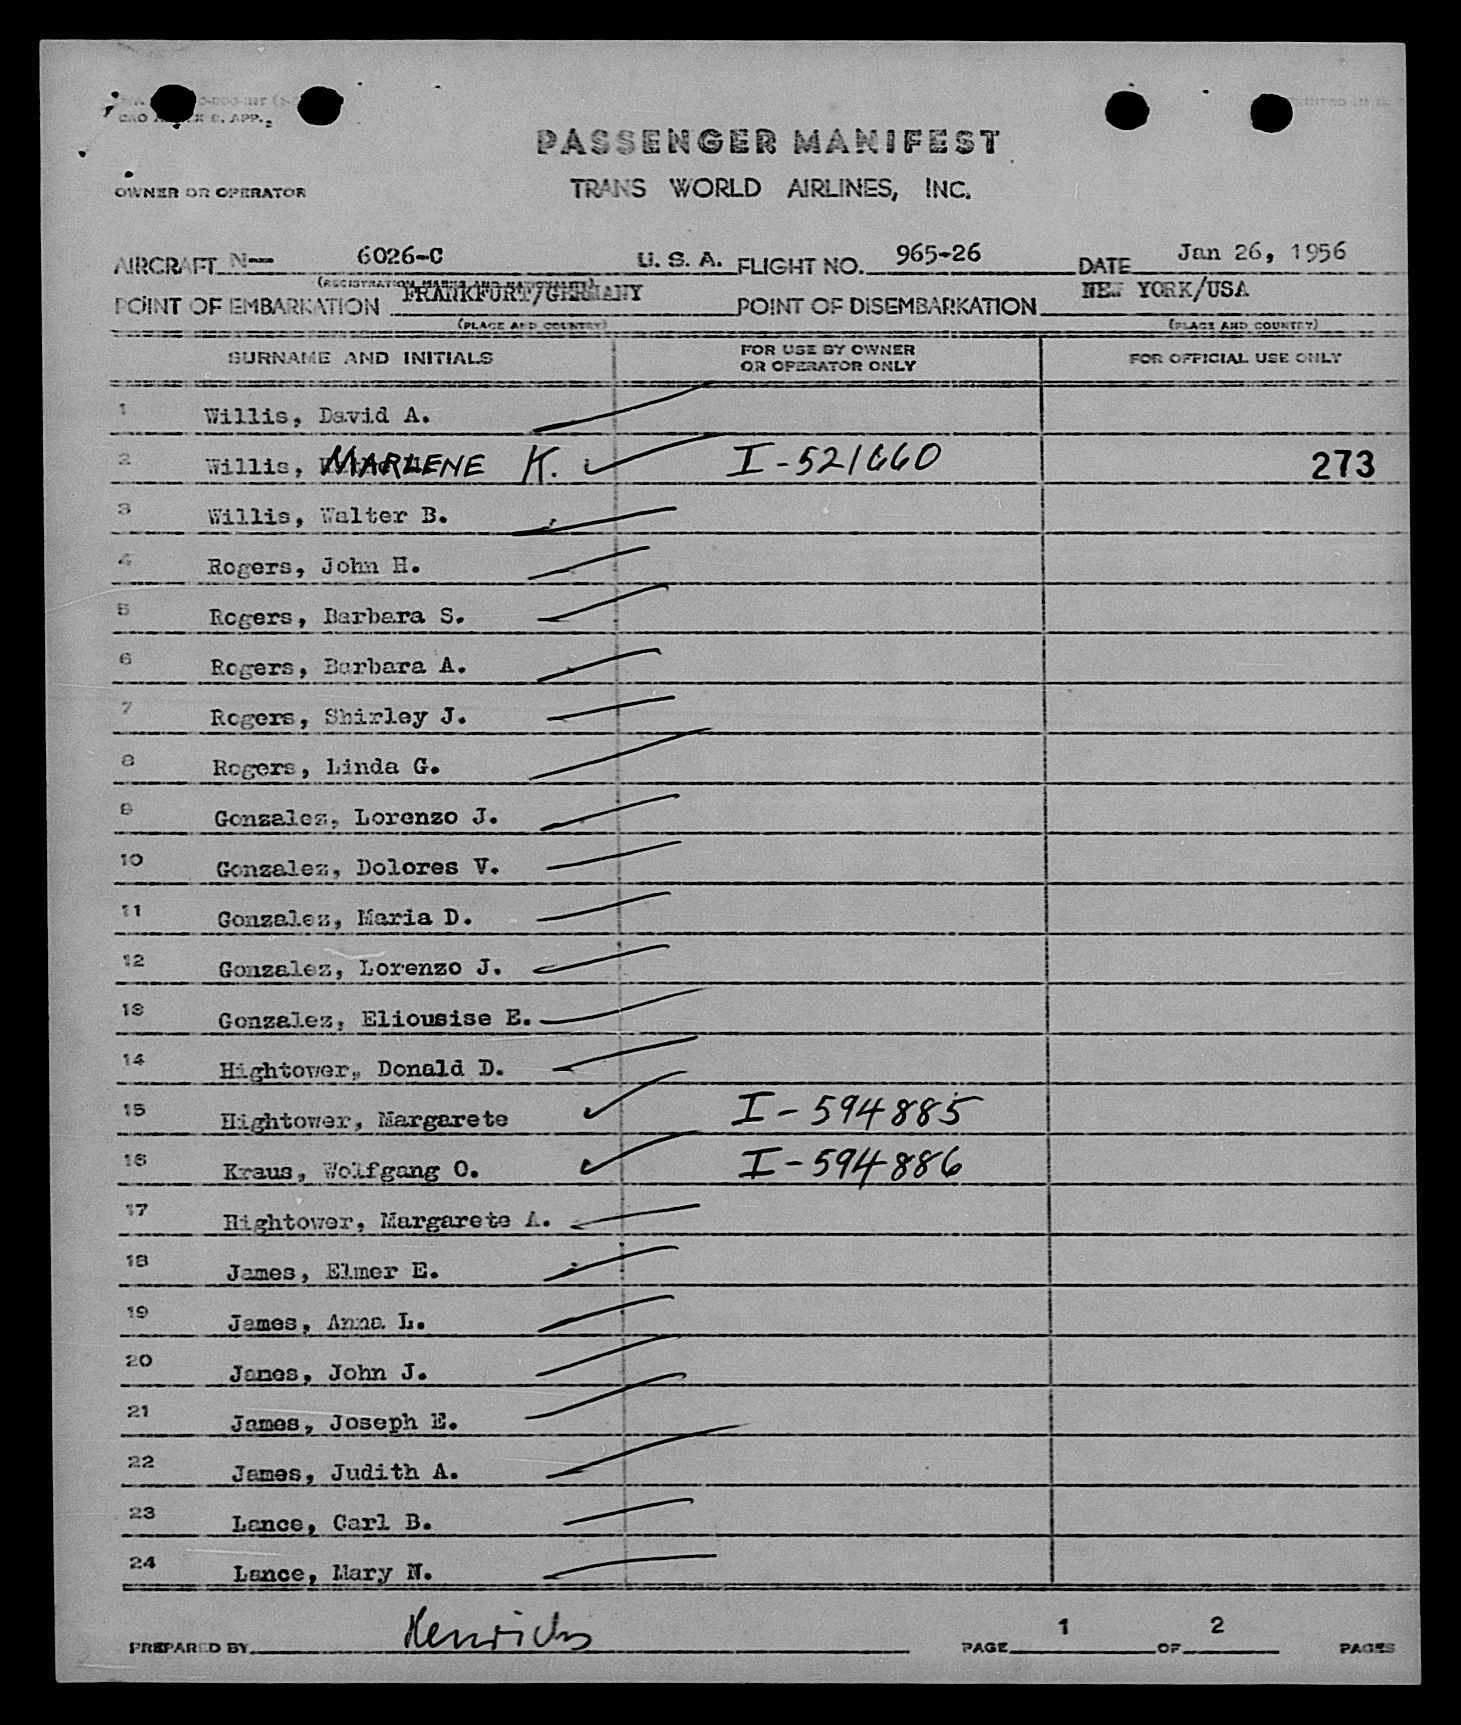 CAO
PASSENGER MANIFEST
OWNER OR OPERATOR TRANS WORLD AIRLINES, INC.
AIRCRAFT N— 6026-C U. S. A. FLIGHT NO. 965-26 DATE Jan 26, 1956
(REGISTRATION MARKS AND NATIONALITY)
POINT OF EMBARKATION FRANKFURT/GERMANY POINT OF DISEMBARKATION NEW YORK/USA
(PLACE AND COUNTRY) (PLACE AND COUNTRY)
SURNAME AND INITIALS FOR USE BY OWNER OR OPERATOR ONLY FOR OFFICIAL USE ONLY
1 Willis, David A.
2 Willis, MARLENE K. I-521660 273
3 Willis, Walter B.
4 Rogers, John H.
5 Rogers, Barbara S.
6 Rogers, Barbara A.
7 Rogers, Shirley J.
8 Rogers, Linda G.
9 Gonzalez, Lorenzo J.
10 Gonzalez, Dolores V.
11 Gonzalez, Maria D.
12 Gonzalez, Lorenzo J.
13 Gonzalez, Eliousise E.
14 Hightower, Donald D.
15 Hightower, Margarete I-594885
16 Kraus, Wolfgang O. I-594886
17 Hightower, Margarete A.
18 James, Elmer E.
19 James, Anna L.
20 James, John J.
21 James, Joseph E.
22 James, Judith A.
23 Lance, Carl B.
24 Lance, Mary N.
PREPARED BY Henrichs PAGE 1 OF 2 PAGES